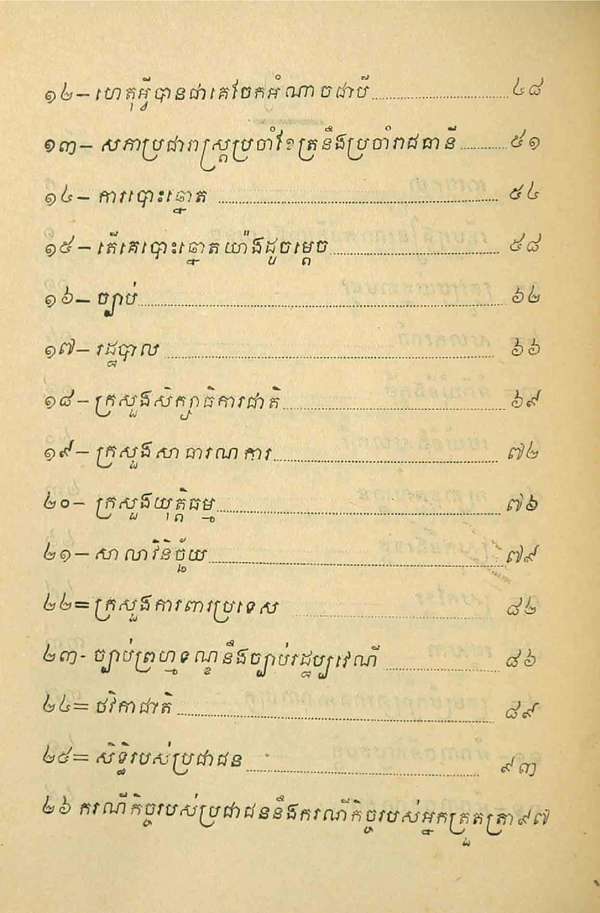 ១២– ហេតុអ្វីបានជាគេចែកអំណាចជាបី ៤៨
១៣– សភាប្រជារាស្ត្រប្រចាំខែត្រនឹងប្រចាំរាជធានី ៥១
១៤– ការបោះឆ្នោត ៥៤
១៥– តើគេបោះឆ្នោតយ៉ាងដូចម្ដេច ៥៨
១៦– ច្បាប់ ៦២
១៧– រដ្ឋបាល ៦៦
១៨– ក្រសួងសិក្សាធិការជាតិ ៦៩
១៩– ក្រសួងសាធារណការ ៧២
២០– ក្រសួងយុត្តិធម្ម ៧៦
២១– សាលាវិនិច្ឆ័យ ៧៩
២២= ក្រសួងការពារប្រទេស ៨២
២៣- ច្បាប់ព្រហ្មទណ្ឌនឹងច្បាប់រដ្ឋប្បវេណី ៨៦
២៤= ថវិកាជាតិ ៨៩
២៥= សិទ្ធិរបស់ប្រជាជន ៩៣
២៦ ករណីកិច្ចរបស់ប្រជាជននឹងករណីកិច្ចរបស់អ្នកត្រួតត្រា ៩៧